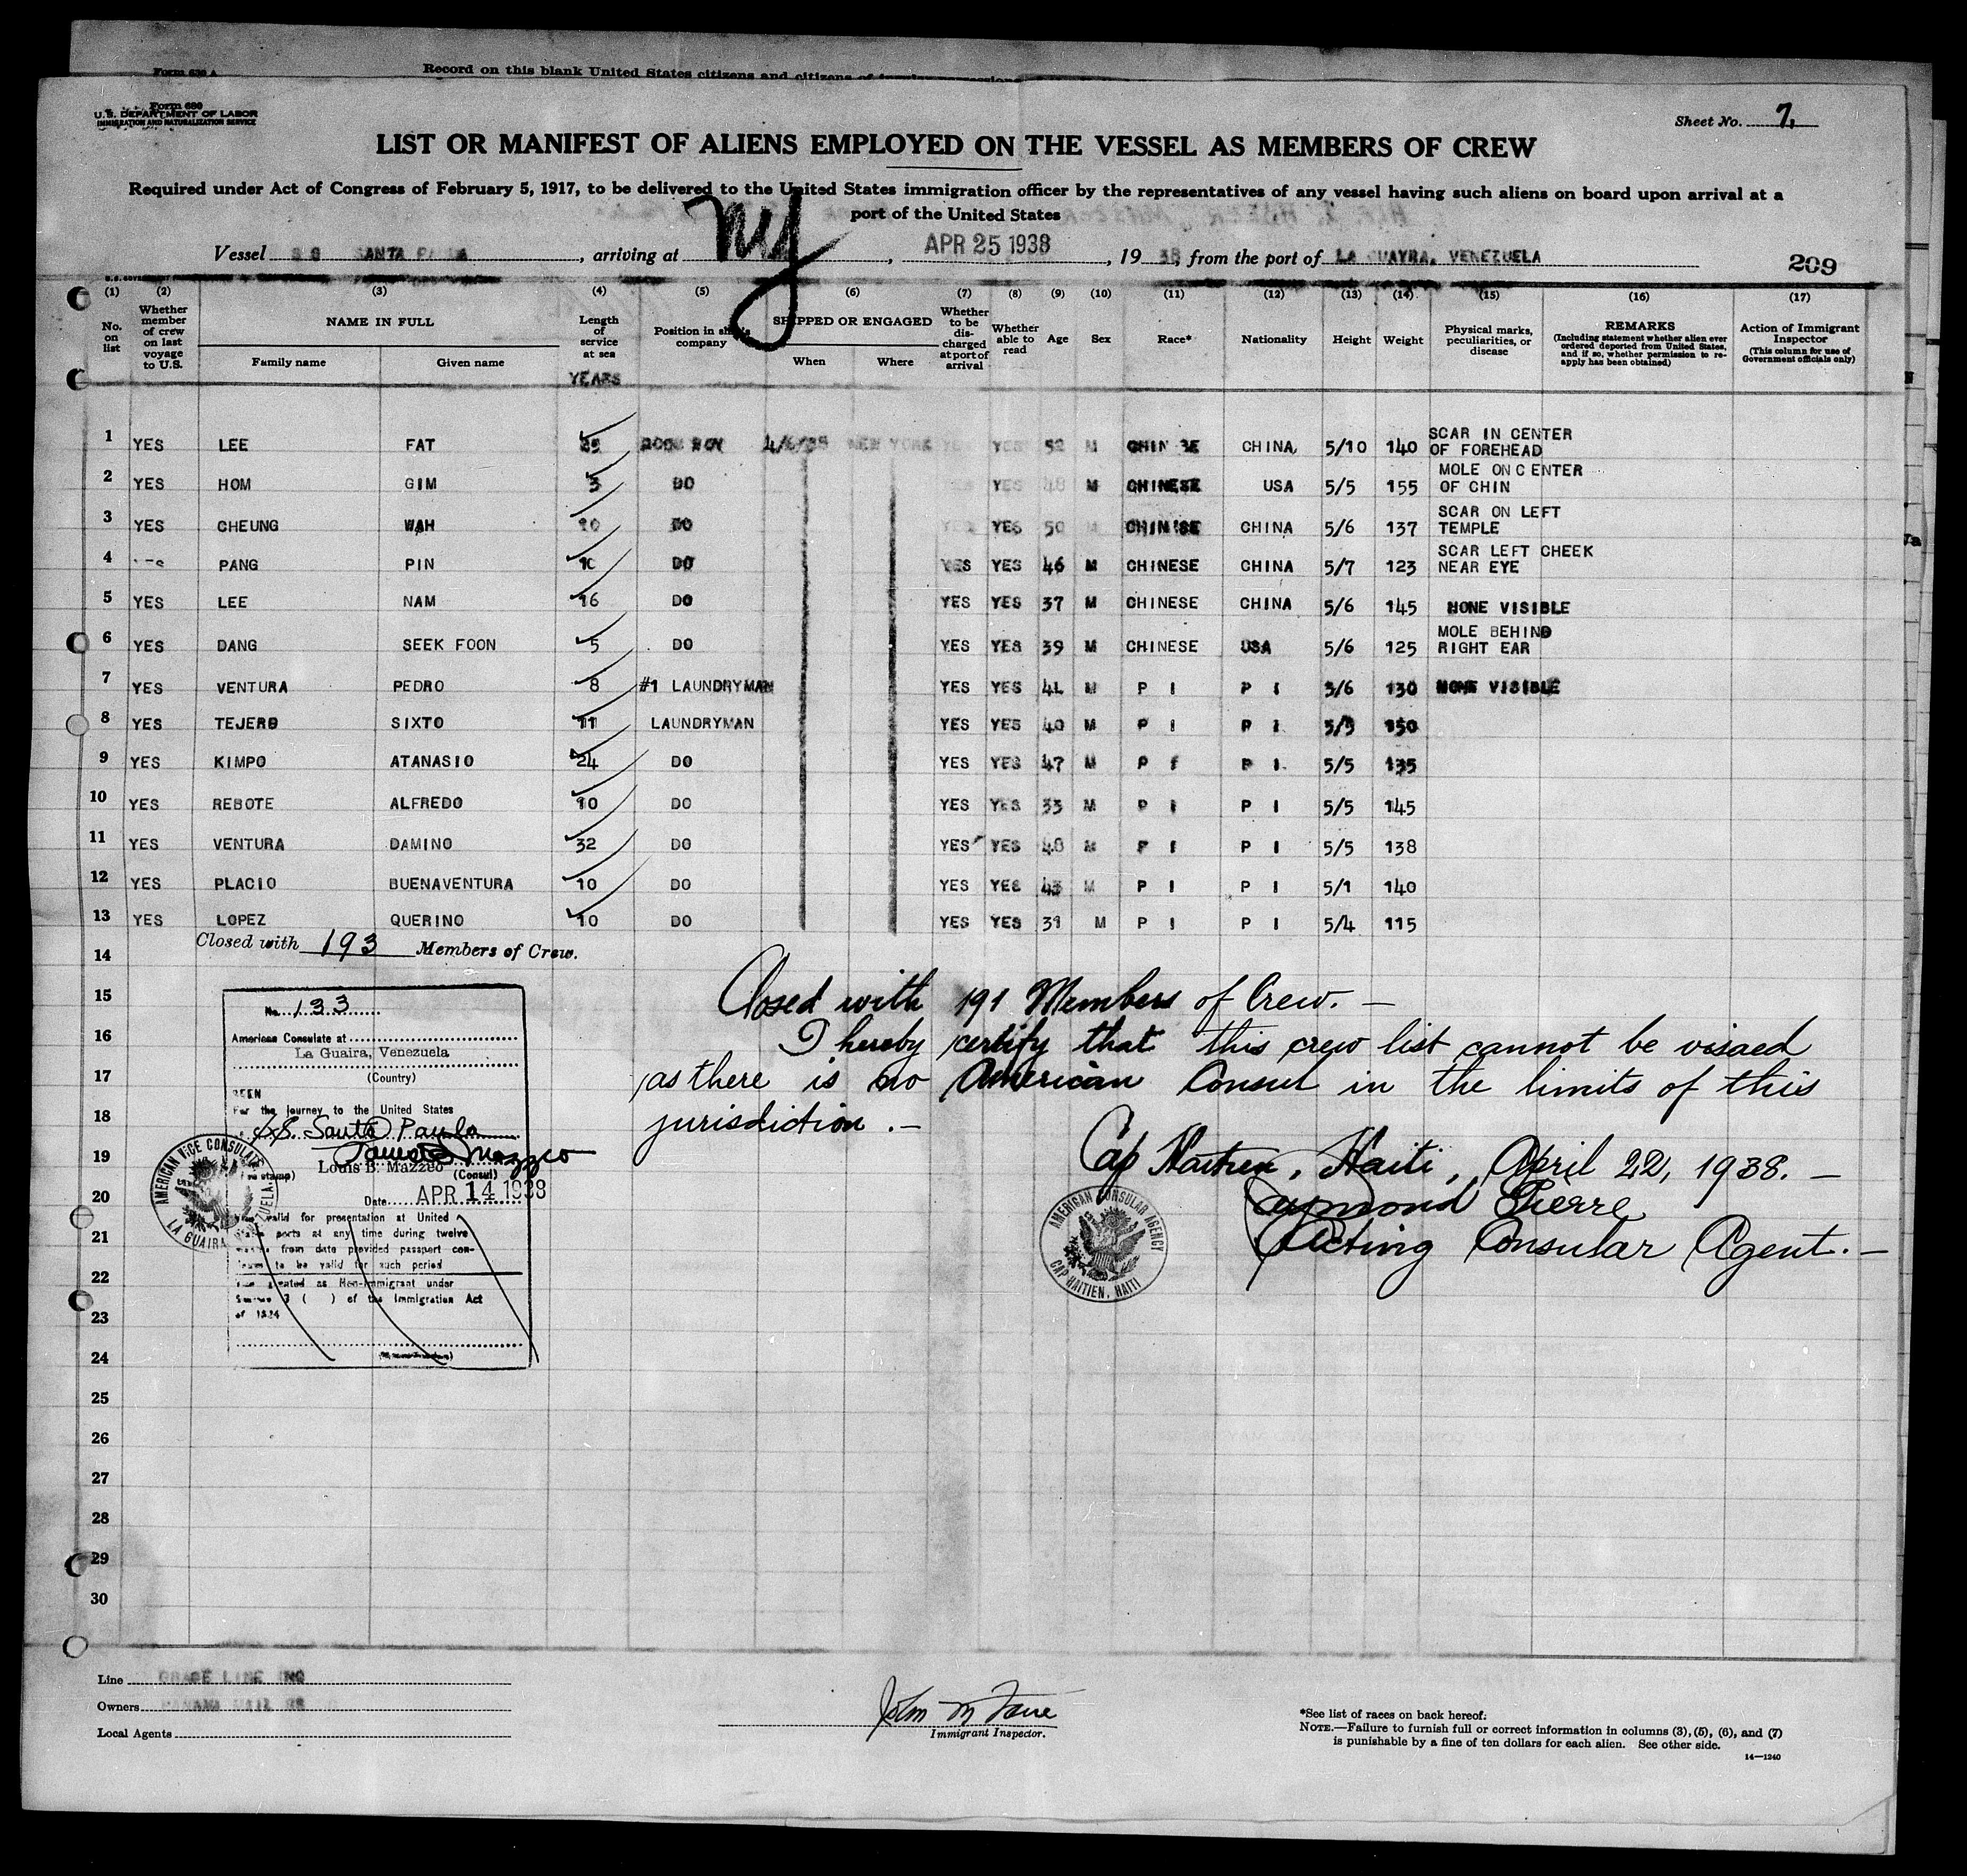 Form 630 A
Record on this blank United States citizens and citizens of
Form 680
U.S. DEPARTMENT OF LABOR
IMMIGRATION AND NATURALIZATION SERVICE
Sheet No. 7.
LIST OR MANIFEST OF ALIENS EMPLOYED ON THE VESSEL AS MEMBERS OF CREW
Required under Act of Congress of February 5, 1917, to be delivered to the United States immigration officer by the representatives of any vessel having such aliens on board upon arrival at a
port of the United States
Vessel SS SANTA PAULA, arriving at NY, APR 25 1938, 19 38, from the port of LA GUAYRA, VENEZUELA
209
(1) (2) (3) (4) (5) (6) (7) (8) (9) (10) (11) (12) (13) (14) (15) (16) (17)
No. on list
Whether member of crew on last voyage to U.S.
NAME IN FULL
Family name Given name
Length of service at sea
YEARS
Position in ship's company
SHIPPED OR ENGAGED
When Where
Whether to be discharged at port of arrival
Whether able to read
Age Sex Race* Nationality Height Weight
Physical marks, peculiarities, or disease
REMARKS
(Including statement whether alien ever ordered deported from United States, and if so, whether permission to reapply has been obtained)
Action of Immigrant Inspector
(This column for use of Government officials only)
1 YES LEE FAT ROOM BOY NEW YORK YES 52 M CHINESE CHINA, 5/10 140 SCAR IN CENTER OF FOREHEAD
2 YES HOM GIM 3 DO YES 48 M CHINESE USA 5/5 155 MOLE ON CENTER OF CHIN
3 YES CHEUNG WAH DO YES 50 M CHINESE CHINA 5/6 137 SCAR ON LEFT TEMPLE
4 PANG PIN 10 DO YES YES 46 M CHINESE CHINA 5/7 123 SCAR LEFT CHEEK NEAR EYE
5 YES LEE NAM 16 DO YES YES 37 M CHINESE CHINA 5/6 145 NONE VISIBLE
6 YES DANG SEEK FOON 5 DO YES YES 39 M CHINESE USA 5/6 125 MOLE BEHIND RIGHT EAR
7 YES VENTURA PEDRO 8 #1 LAUNDRYMAN YES YES 41 M P I P I 5/6 130 NONE VISIBLE
8 YES TEJERO SIXTO 11 LAUNDRYMAN YES YES 40 M P I P I 5/5 150
9 YES KIMPO ATANASIO 24 DO YES YES 47 M P I P I 5/5 135
10 YES REBOTE ALFREDO 10 DO YES YES 33 M P I P I 5/5 145
11 YES VENTURA DAMINO 32 DO YES YES 48 M P I P I 5/5 138
12 YES PLACIO BUENAVENTURA 10 DO YES YES 43 M P I P I 5/1 140
13 YES LOPEZ QUERINO 10 DO YES YES 39 M P I P I 5/4 115
Closed with 193 Members of Crew.
14
15
16
17
18
19
20
21
22
23
24
25
26
27
28
29
30
No. 133
American Consulate at
La Guaira, Venezuela
(Country)
SEEN
For the journey to the United States
S.S. Santa Paula
Louis B. Mazzeo
(Consul)
Date APR 14 1938
valid for presentation at United
States ports at any time during twelve
months from date provided passport con-
tinues to be valid for such period
as Non-Immigrant under
Section 3 ( ) of the Immigration Act
of 1924
AMERICAN VICE CONSULATE
LA GUAIRA VENEZUELA
Closed with 191 Members of Crew. —
I hereby certify that this crew list cannot be visaed
as there is no American Consul in the limits of this
jurisdiction. —
Cap Haitien, Haiti, April 22, 1938. —
Raymond Pierre
Acting Consular Agent. —
AMERICAN CONSULAR AGENCY
CAP HAITIEN, HAITI
Line GRACE LINE INC
Owners PANAMA MAIL SS
Local Agents
Immigrant Inspector.
*See list of races on back hereof.
NOTE.—Failure to furnish full or correct information in columns (3), (5), (6), and (7)
is punishable by a fine of ten dollars for each alien. See other side.
14—1240